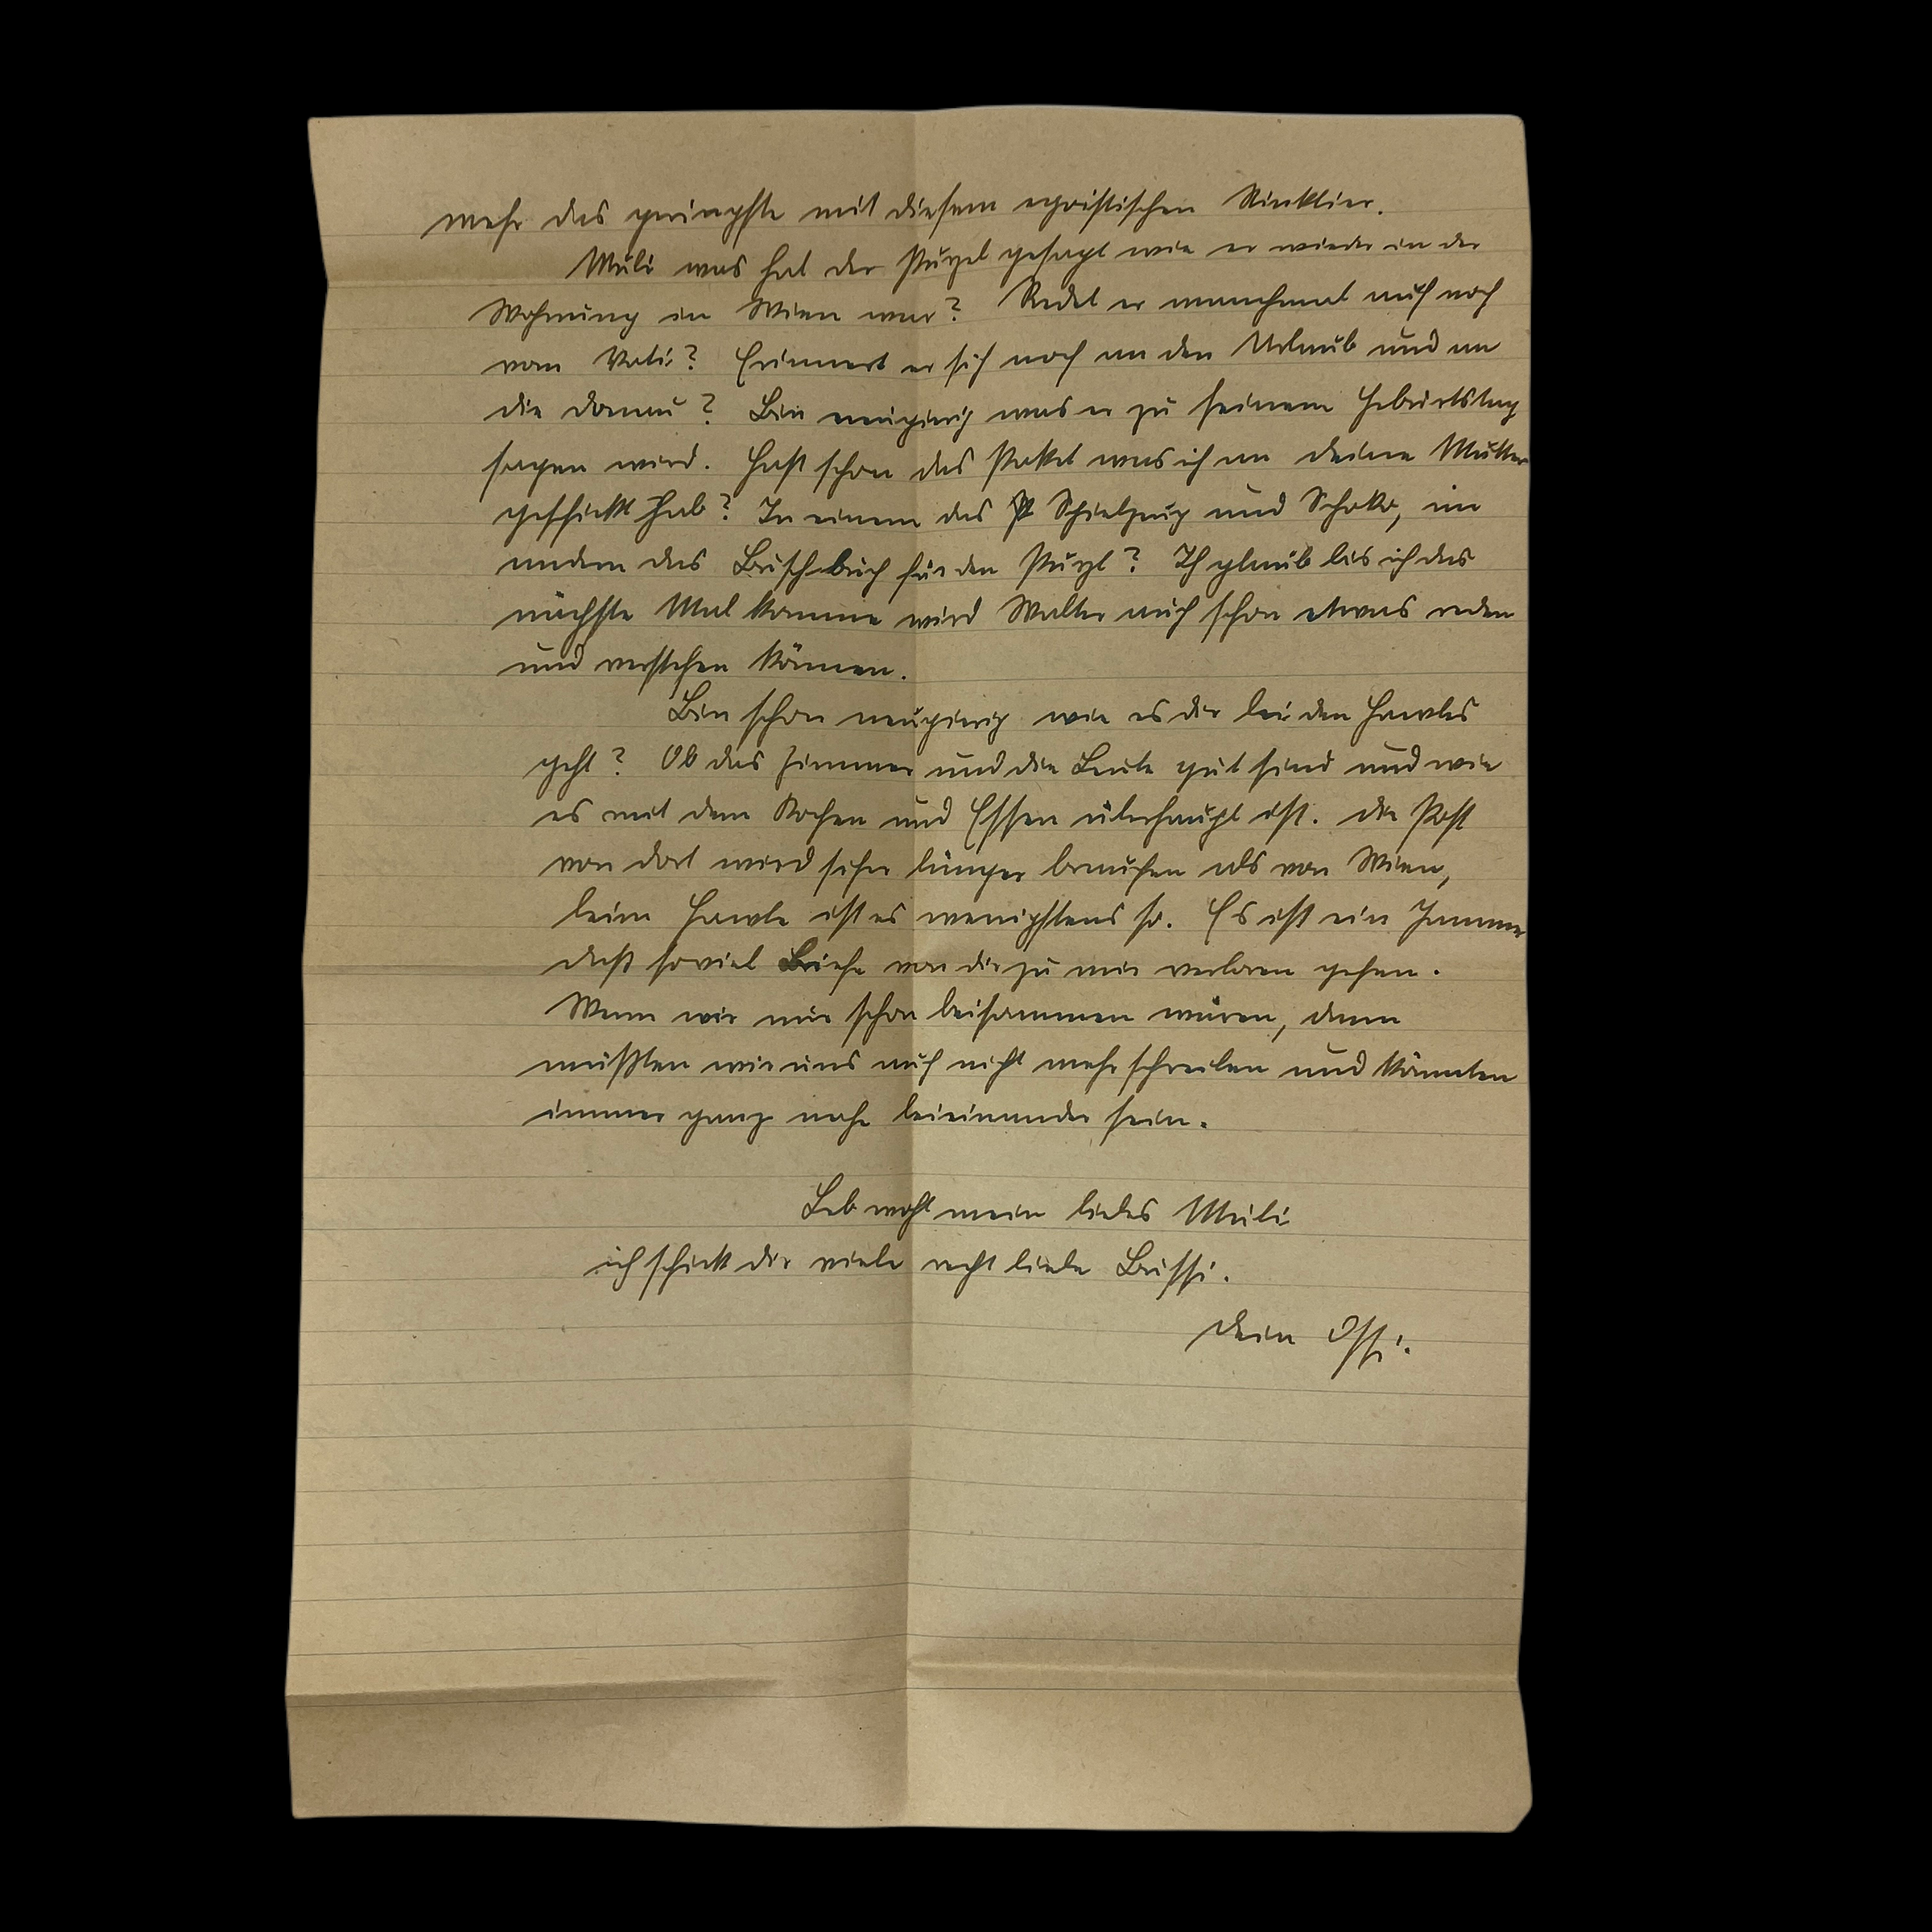 mehr das geringste mit diesem egoistischen Stinktier.
Muli was hat der Purzel gesagt wie er wieder in der
Wohnung in Wien war? Redet er manchmal auch noch
vom Vati? Erinnert er sich noch an den Urlaub und an
die Donau? Bin neugierig was er zu seinem Geburtstag
sagen wird. Hast schon das Paket was ich an deine Mutter
geschickt hab? In einem das Spielzeug und Schoko, im
andern das Buschbuch für den Purzl? Ich glaub bis ich das
nächste Mal komme wird Walter auch schon etwas reden
und verstehen können.
Bin schon neugierig wie es dir bei den Hawles
geht? Ob das Zimmer und die Leute gut sind und wie
es mit dem Kochen und Essen überhaupt ist. Die Post
von dort wird sicher länger brauchen als von Wien,
beim Hawle ist es wenigstens so. Es ist ein Jammer
daß soviel Briefe von dir zu mir verloren gehen.
Wenn wir nur schon beisammen wären, dann
müßten wir uns auch nicht mehr schreiben und könnten
immer ganz nahe beieinander sein.
Leb wohl mein liebes Muli
ich schick dir viele recht liebe Bussi.
Dein Ossi.